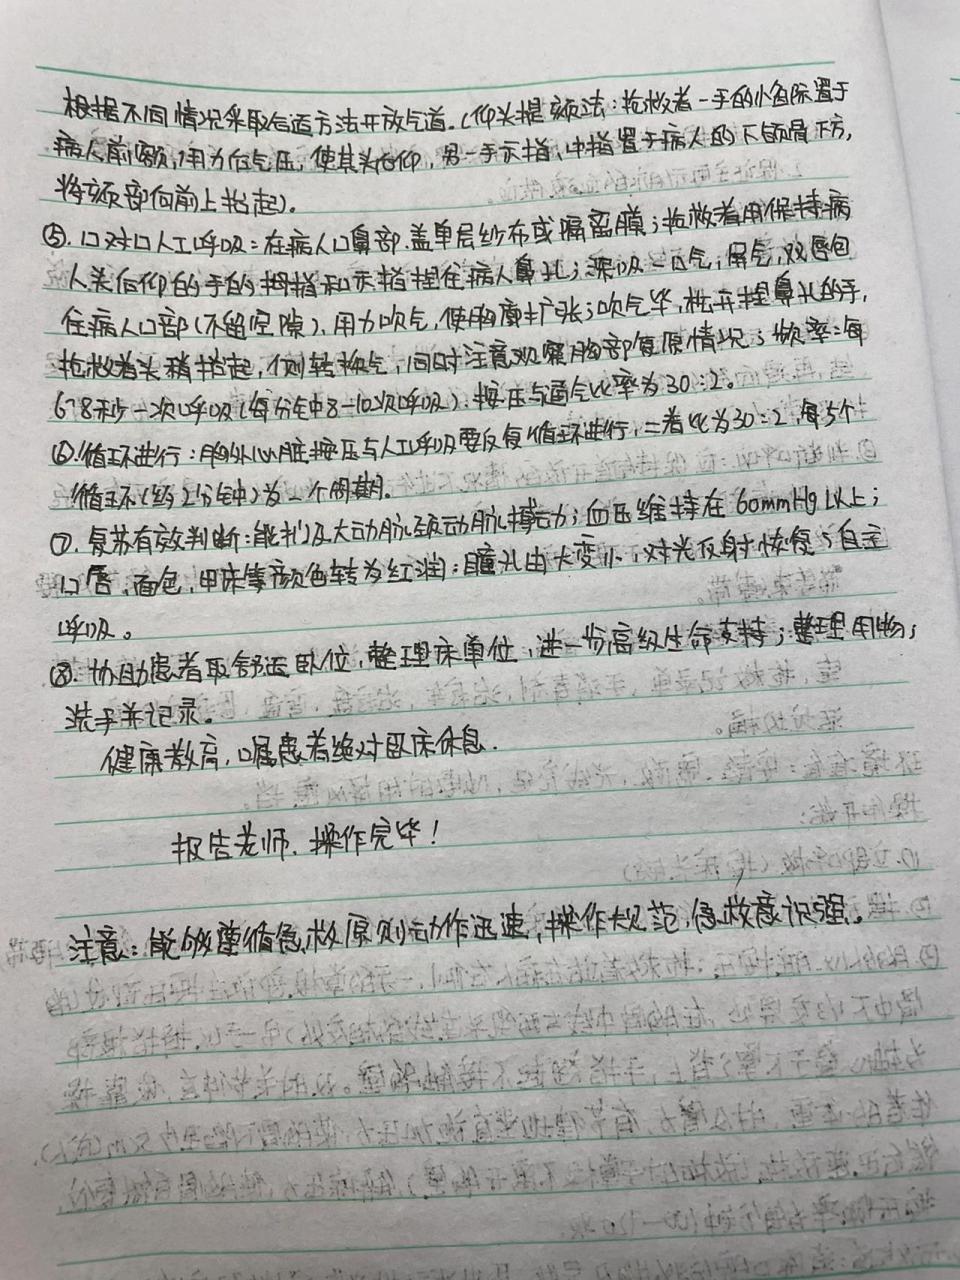 根据不同情况采取合适方法开放气道.(仰头提颏法:抢救者一手的小鱼际置于
病人前额,用力向后压,使其头后仰,另一手示指、中指置于病人的下颌骨下方,
将颏部向前上抬起).
⑤.口对口人工呼吸:在病人口鼻部盖单层纱布或隔离膜;抢救者用保持病
人头后仰的手的拇指和示指捏住病人鼻孔;深吸一口气,屏气,双唇包
住病人口部(不留空隙),用力吹气,使胸廓扩张;吹气毕,松开捏鼻孔的手,
抢救者头稍抬起,侧转换气,同时注意观察胸部复原情况;频率:每
6~8秒一次呼吸(每分钟8-10次呼吸).按压与通气比率为30:2。
⑥.循环进行:胸外心脏按压与人工呼吸要反复循环进行,二者比为30:2,每5个
循环(约2分钟)为一个周期.
⑦.复苏有效判断:能扪及大动脉颈动脉搏动;血压维持在60mmHg以上;
口唇,面色,甲床等颜色转为红润;瞳孔由大变小,对光反射恢复;自主
呼吸。
⑧.协助患者取舒适卧位,整理床单位,进一步高级生命支持;整理用物;
洗手并记录。
健康教育,嘱患者绝对卧床休息.
报告老师,操作完毕!
注意:能够遵循急救原则动作迅速,操作规范,急救意识强。